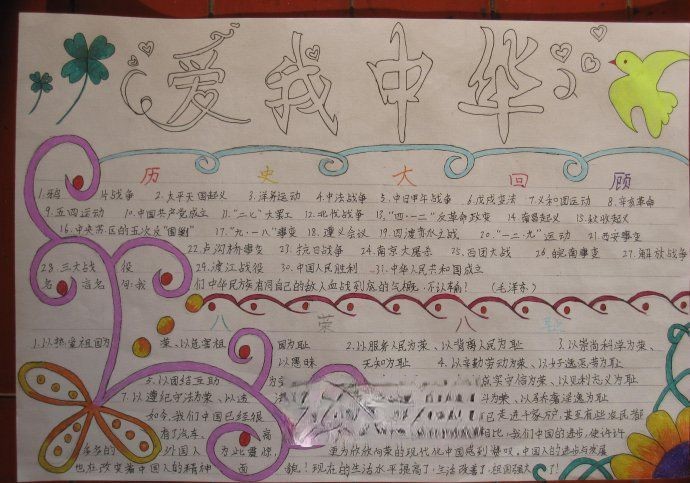 爱我中华
历史大回顾
1.鸦片战争 2.太平天国起义 3.洋务运动 4.中法战争 5.中日甲午战争 6.戊戌变法 7.义和团运动 8.辛亥革命
9.五四运动 10.中国共产党成立 11."二七"大罢工 12.北伐战争 13."四·一二"反革命政变 14.南昌起义 15.秋收起义
16.中央苏区的五次反"围剿" 17."九·一八"事变 18.遵义会议 19.四渡赤水之战 20."一二·九"运动 21.西安事变
22.卢沟桥事变 23.抗日战争 24.南京大屠杀 25.百团大战 26.皖南事变 27.解放战
28.三大战役 29.渡江战役 30.中国人民胜利 31.中华人民共和国成立
名言名句:我们中华民族有同自己的敌人血战到底的气概,不认输! (毛泽东)
八荣八耻
1.以热爱祖国为荣、以危害祖国为耻 2.以服务人民为荣、以背离人民为耻 3.以崇尚科学为荣、
以愚昧无知为耻 4.以辛勤劳动为荣、以好逸恶劳为耻
5.以团结互助为 诚实守信为荣、以见利忘义为耻
7.以遵纪守法为荣、以违 为荣、以骄奢淫逸为耻
如今,我们中国已经很 已走进千家万户,甚至有些农民都
有了汽车、 相比,我们中国的进步,使许许
多多的外国人为此震惊, 更为欣欣向荣的现代化中国感到赞叹,中国人的进步与发展
也在改变着中国人的精神面貌!现在的生活水平提高了,生活改善了,祖国强大了!